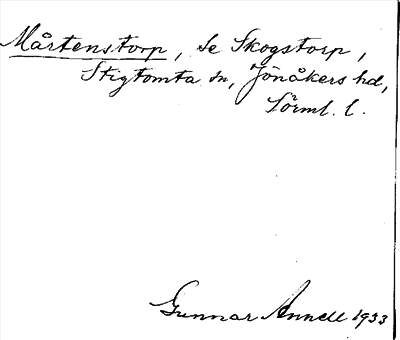 Mårtenstorp, se Skogstorp,
Stigtomta sn, Jönåkers hd,
Sörml. l.
Gunnar Annell 1933